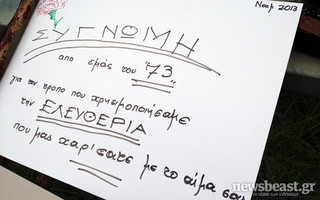 Νοεμ 2013
ΣΥΓΝΩΜΗ
απο εμάς του '73
για τον τροπο που χρησιμοποιήσαμε
την ΕΛΕΥΘΕΡΙΑ
που μας χαρίσατε με το αίμα σας
newsbeast.gr